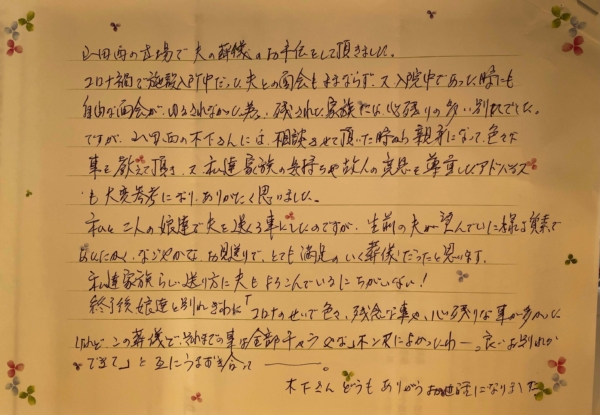 山田西の式場で夫の葬儀のお手伝をして頂きました。
コロナ禍で施設入所中だった夫との面会もままならず、又入院中であった時にも
自由な面会がゆるされなかった為、残された家族には心残りの多い別れでした。
ですが、山田西の木下さんには、相談させて頂いた時から親身になって色々な
事を教えて頂き、又私達家族の気持ちや故人の意思を尊重したアドバイス
も大変参考になり、ありがたく思いました。
私と二人の娘達で夫を送る事にしたのですが、生前の夫が望んでいた様な質素で
あたたかく、なごやかなお見送りで、とても満足のいく葬儀だったと思います。
私達家族らしい送り方に夫もよろこんでいるにちがいない!
終了後娘達と別れぎわに「コロナのせいで色々、残念な事や、心残りな事が多かった
けれど、この葬儀で、それまでの事は全部チャラやな」「ホンマによかったわー。良いお別れが
できて」と互にうなずき合って――。
木下さん どうもありがとう お世話になりました